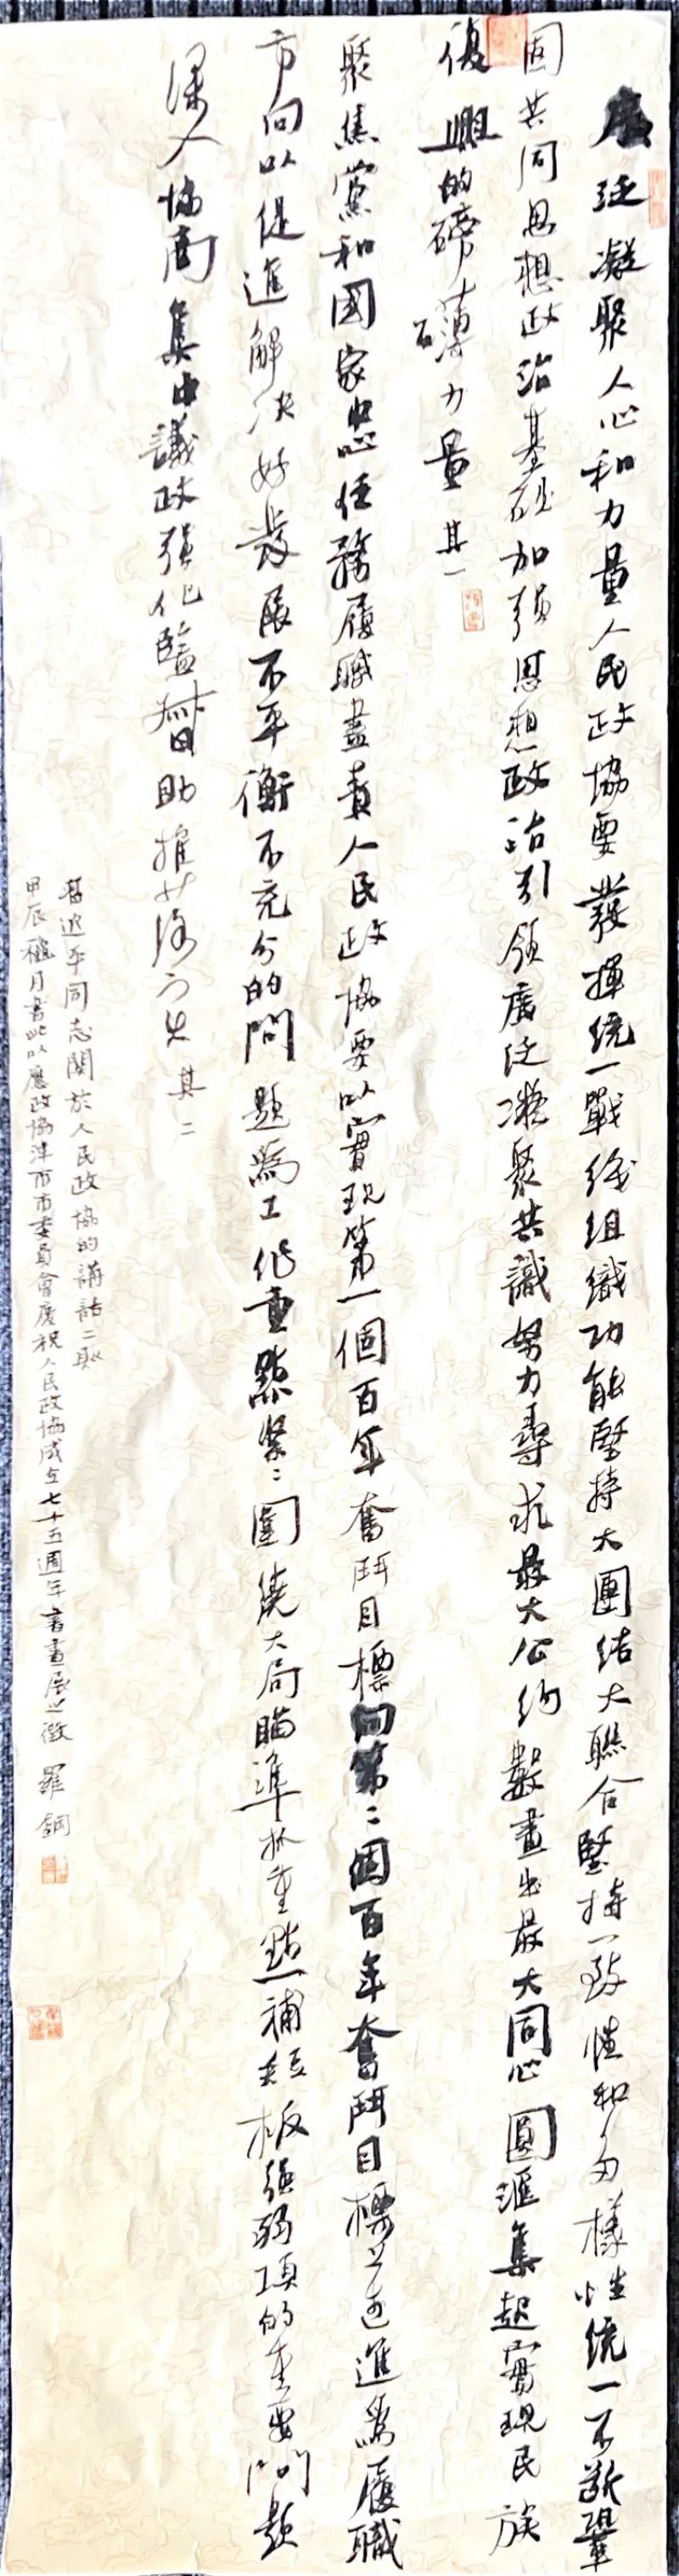 廣泛凝聚人心和力量人民政協要發揮統一戰綫組織功能堅持大團结大聯合堅持一致性和多樣性統一不斷鞏
固共同思想政治基礎加强思想政治引領廣泛凝聚共識努力尋求最大公約數畫出最大同心圓匯集起實現民族
復興的磅礴力量 其一
聚焦黨和國家中心任務履職盡責人民政協要以實現第一個百年奮鬥目標向第二個百年奮鬥目標邁進爲履職
方向以促進解决好發展不平衡不充分的問題爲工作重點緊緊圍繞大局瞄準抓重點補短板强弱項的重要問題
深入協商集中議政强化監督助推落實 其二
習近平同志關於人民政協的講話二則
甲辰 月書此以應政協津市市委員會慶祝人民政協成立七十五週年書畫展之徵 羅鋼